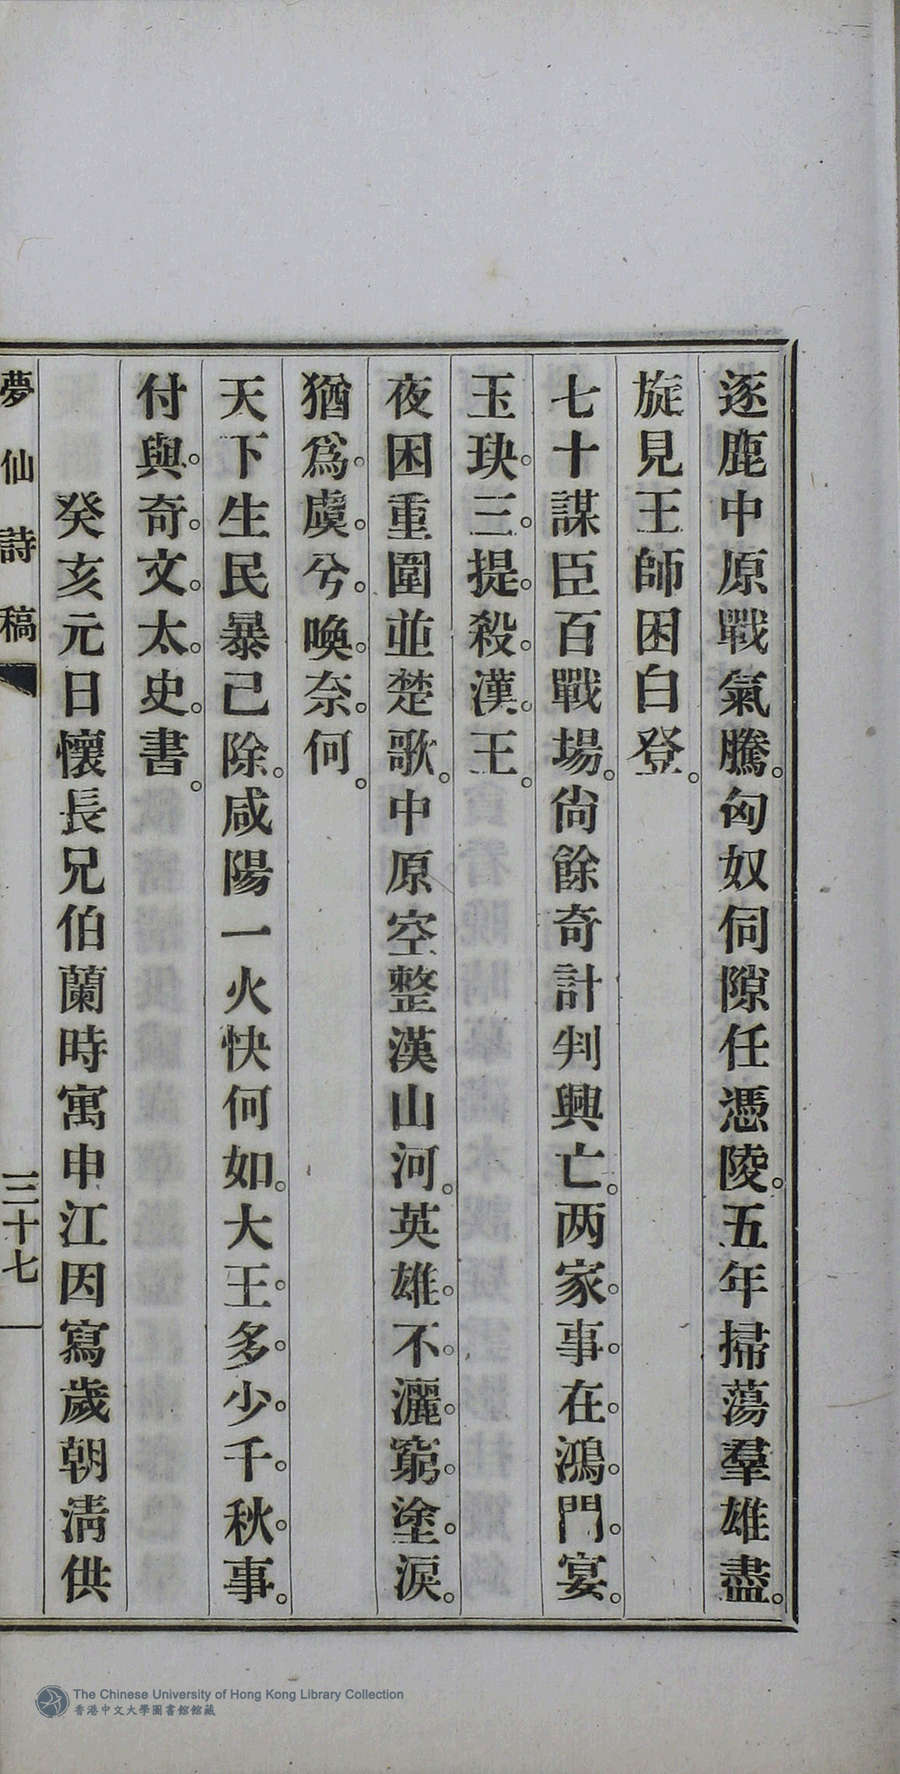 逐鹿中原戰氣騰。匈奴伺隙任憑陵。五年掃蕩羣雄盡。
旋見王師困白登。
七十謀臣百戰場。尙餘奇計判興亡。两家。事。在。鴻。門。宴。
玉玦。三。提。殺。漢。王。
夜困重圍並楚歌。中原空整漢山河。英雄。不。灑。窮。塗。淚。
猶爲。虞。兮。喚。奈。何。
天下生民暴已除。咸陽一火快何如。大王。多。少。千。秋。事。
付與。奇。文。太。史。書。
癸亥元日懷長兄伯蘭時寓申江因寫歲朝淸供
夢仙詩稿
三十七
The Chinese University of Hong Kong Library Collection
香港中文大學圖書館館藏